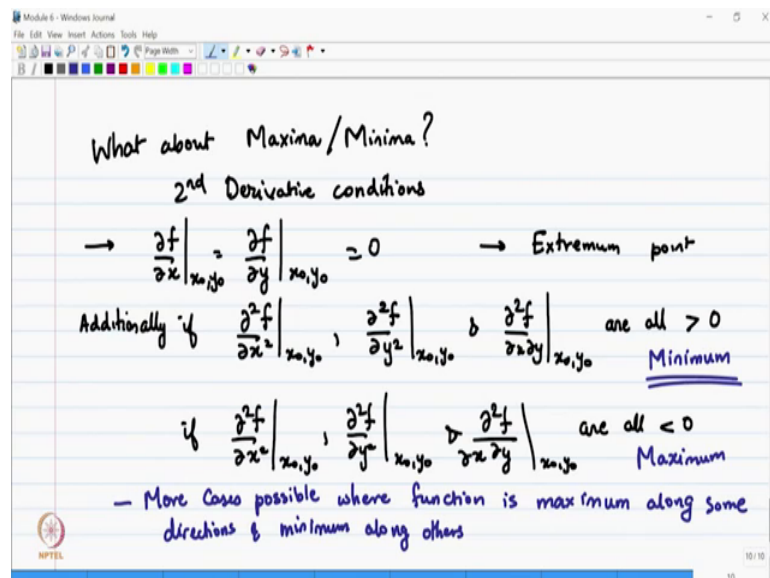 Module 6 - Windows Journal
File Edit View Insert Actions Tools Help
Page Width
B I
What about Maxima/Minima?
2nd Derivative conditions
→ ∂f/∂x|x₀,y₀ = ∂f/∂y|x₀,y₀ = 0 → Extremum point
Additionally if ∂²f/∂x²|x₀,y₀ , ∂²f/∂y²|x₀,y₀ & ∂²f/∂x∂y|x₀,y₀ are all > 0
Minimum
if ∂²f/∂x²|x₀,y₀ , ∂²f/∂y²|x₀,y₀ & ∂²f/∂x∂y|x₀,y₀ are all < 0
Maximum
— More Cases possible where function is maximum along some
directions & minimum along others
NPTEL
10/10
10